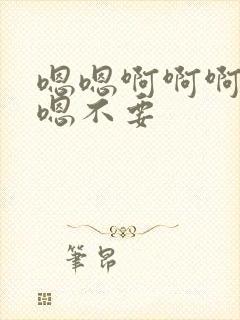 嗯嗯啊啊啊
嗯不要
笔昂